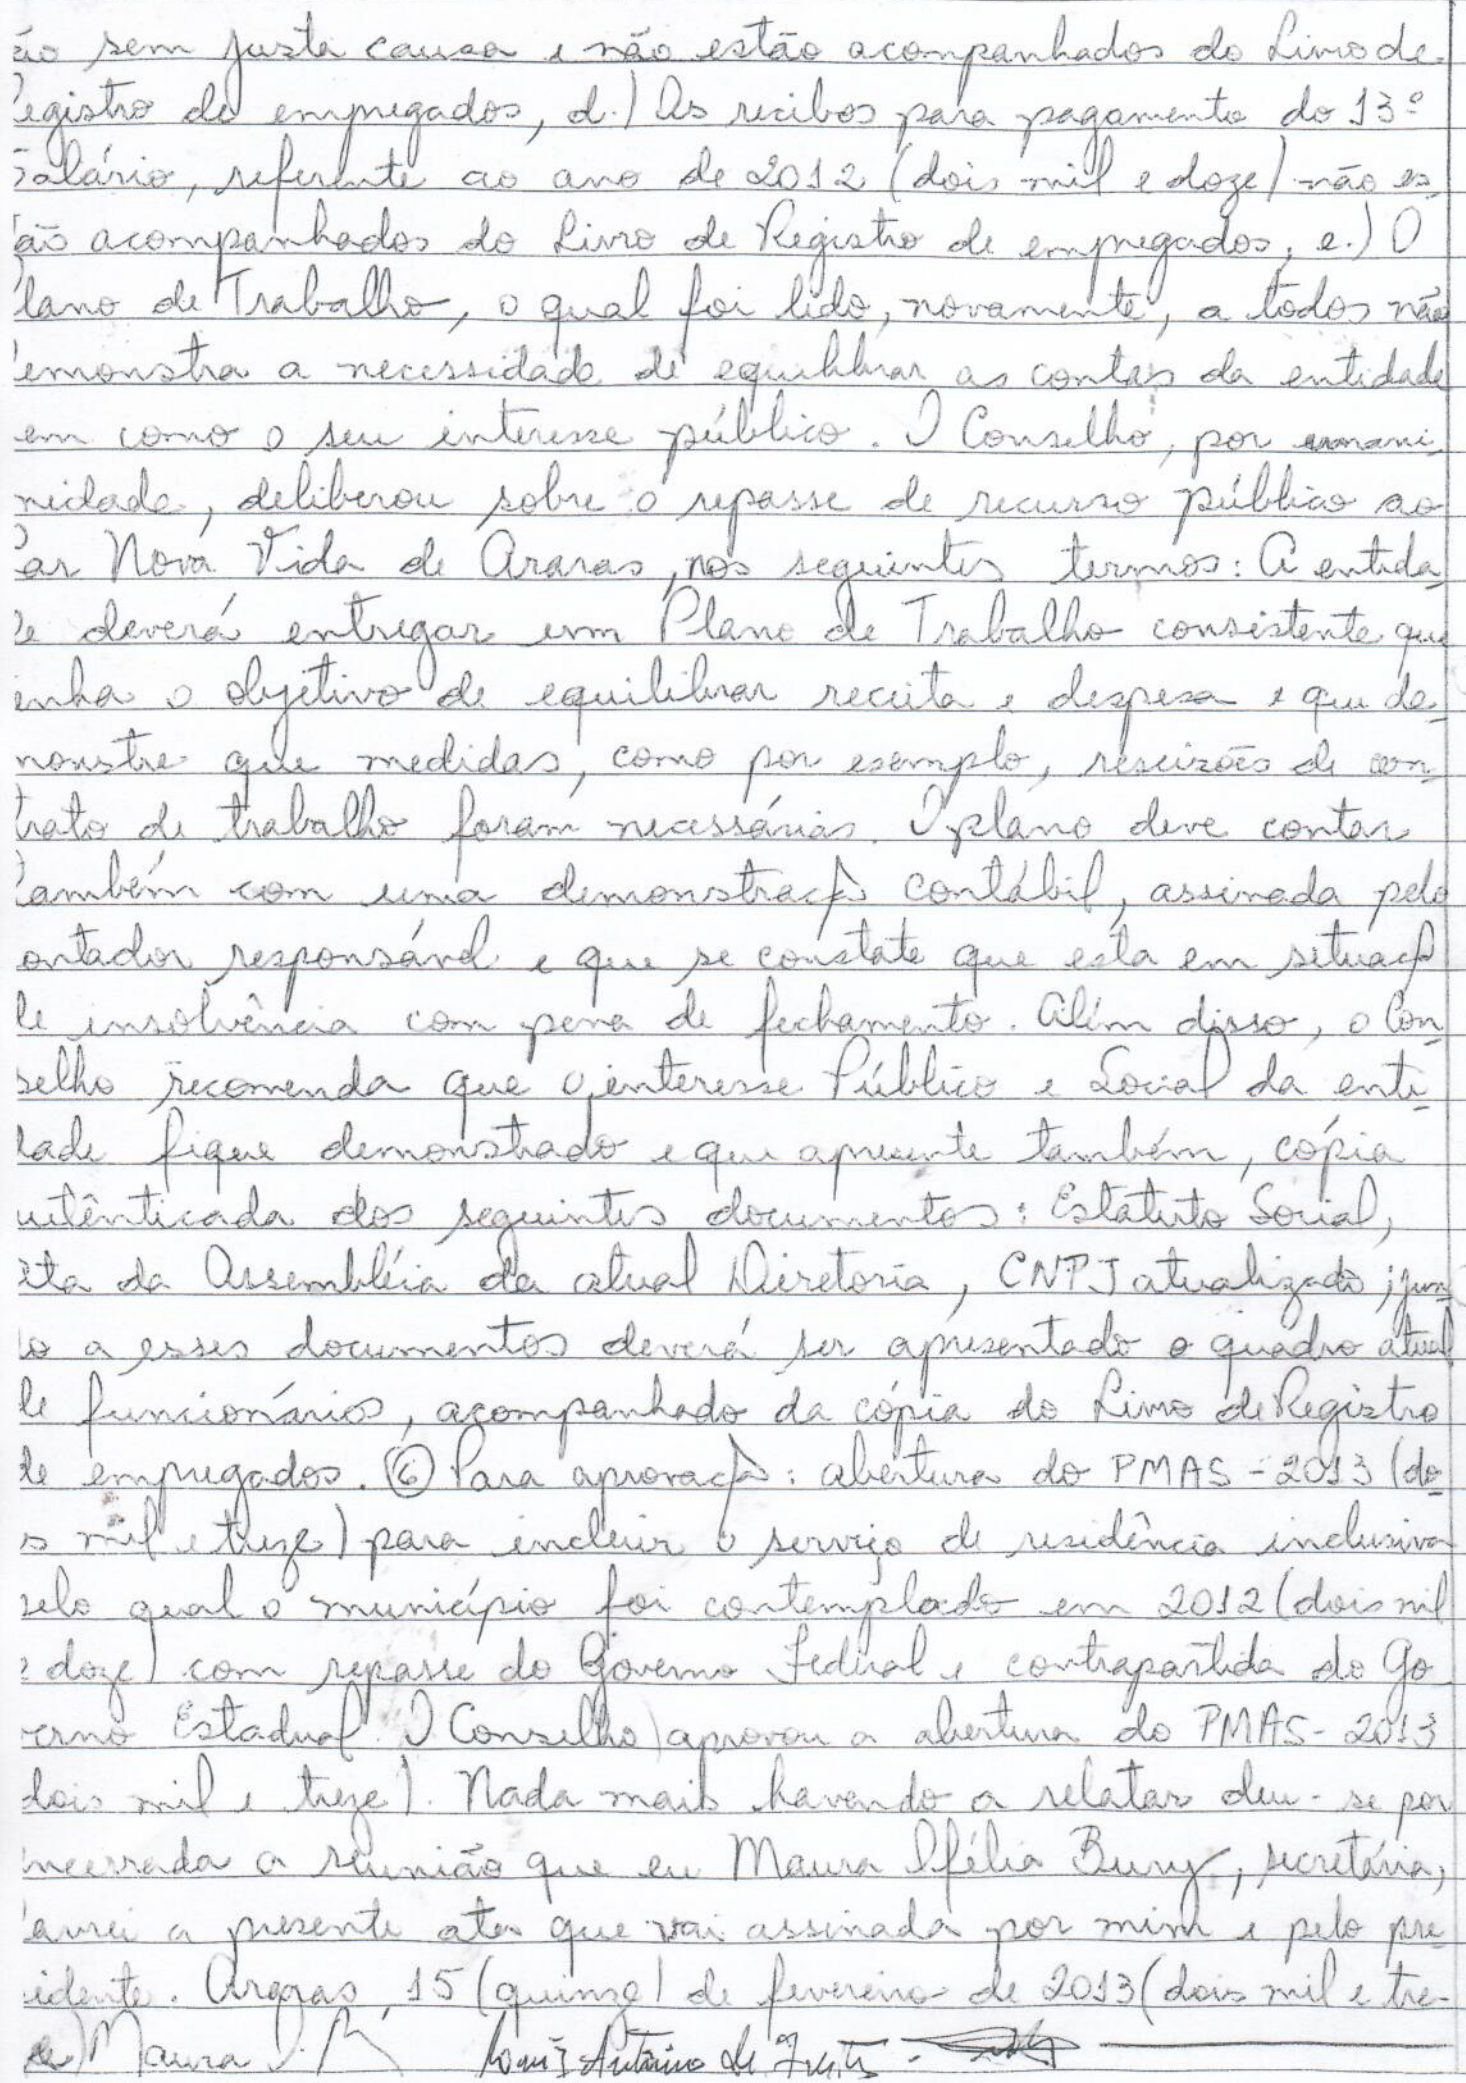 ão sem justa causa e não estão acompanhados do Livro de
egistro de empregados, d.) Os recibos para pagamento do 13º
salário, referente ao ano de 2012 (dois mil e doze) não es-
ão acompanhados do Livro de Registro de empregados; e.) O
lano de Trabalho, o qual foi lido, novamente, a todos não
emonstra a necessidade de equilibrar as contas da entidade
em como o seu interesse público. O Conselho, por unani-
midade, deliberou sobre o repasse de recurso público ao
ar Nova Vida de Araras, nos seguintes termos: A entida-
de deverá entregar um Plano de Trabalho consistente que
enha o objetivo de equilibrar receita e despesa e que de-
monstre que medidas, como por exemplo, rescizões de con-
trato de trabalho foram necessárias. O plano deve contar
também com uma demonstraçã contábil, assinada pelo
ontador responsável e que se constate que esta em situaçã
de insolvência com pena de fechamento. Além disso, o Con-
selho recomenda que o interesse Público e Social da enti-
dade fique demonstrado e que apresente também, cópia
utênticada dos seguintes documentos: Estatuto Social,
ata da Assembléia da atual Diretoria, CNPJ atualizado; jun-
to a esses documentos deverá ser apresentado o quadro atual
de funcionários, acompanhado da cópia do Livro de Registro
de empregados. ⑥ Para aprovaçã: abertura do PMAS - 2013 (do-
s mil e treze) para incluir o serviço de residência inclusiva
pelo qual o município foi contemplado em 2012 (dois mil
e doze) com repasse do Governo Federal e contrapartida do Go-
verno Estadual. O Conselho aprovou a abertura do PMAS - 2013
dois mil e treze). Nada mais havendo a relatar deu-se por
encerrada a reunião que eu Maura Ofélia Bury, secretária,
lavrei a presente ata que vai assinada por mim e pelo pre-
idente. Araras, 15 (quinze) de fevereiro de 2013 (dois mil e tre-
ze) Maura O. B Antônio de